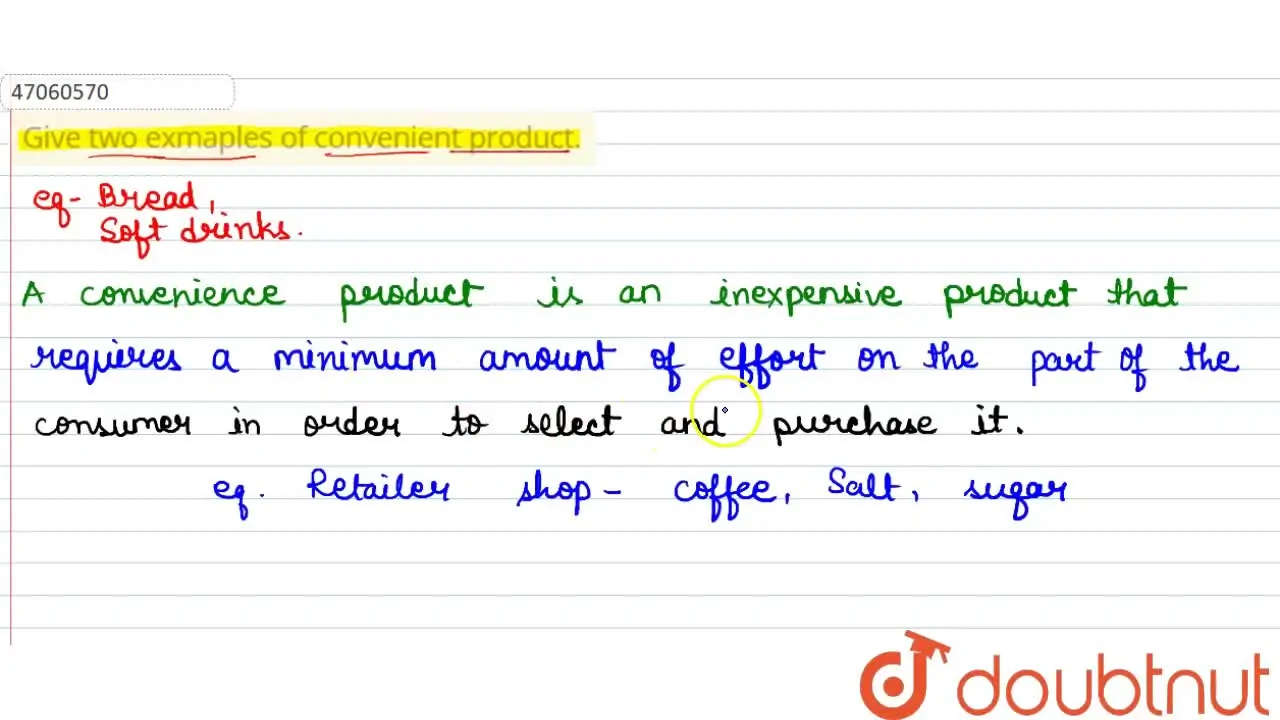 47060570
Give two exmaples of convenient product.
eg- Bread,
Soft drinks.
A convenience product is an inexpensive product that
requires a minimum amount of effort on the part of the
consumer in order to select and purchase it.
eg. Retailer shop - coffee, Salt, sugar
doubtnut